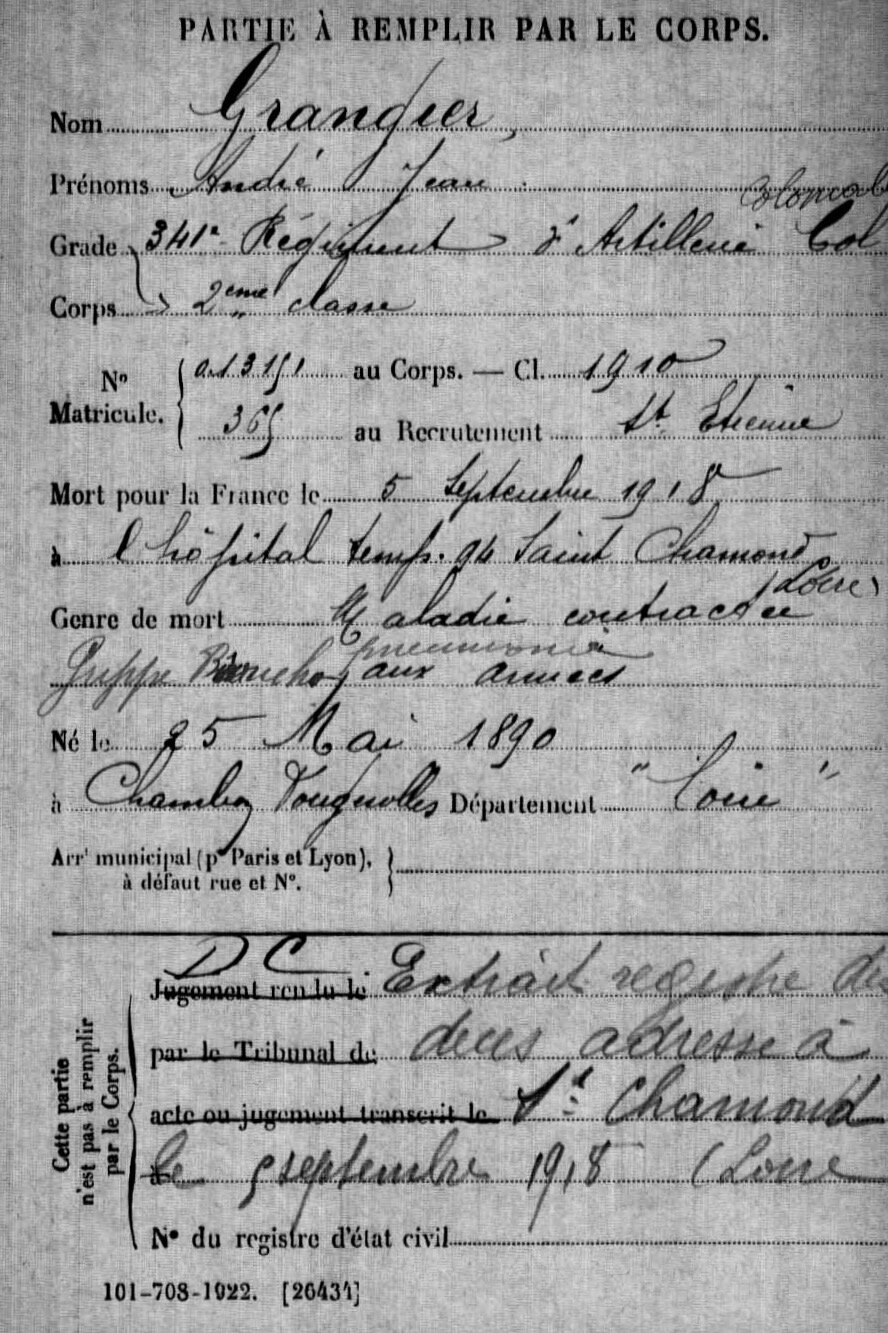 PARTIE À REMPLIR PAR LE CORPS.
Nom Grangier,
Prénoms André Jean
Colonial
Grade 341e Régiment d'Artillerie Col
Corps 2eme classe
No Matricule. { 013151 au Corps. — Cl. 1910
365 au Recrutement St. Etienne
Mort pour la France le 5 Septembre 1918
à l'hôpital temp. 94 Saint Chamond
(Loire)
Genre de mort Maladie contractée
pneumonie
Grippe Broncho aux armées
Né le 25 Mai 1890
à Chambon Feugerolles Département "Loire"
Arrt municipal (pr Paris et Lyon),
à défaut rue et No. }
Cette partie n'est pas à remplir par le Corps.
DC
Jugement rendu le Extrait registre des
par le Tribunal de deces adresse à
acte ou jugement transcrit le St. Chamond
le 5 septembre 1918 (Loire
No du registre d'état civil
101-708-1922. [26434]